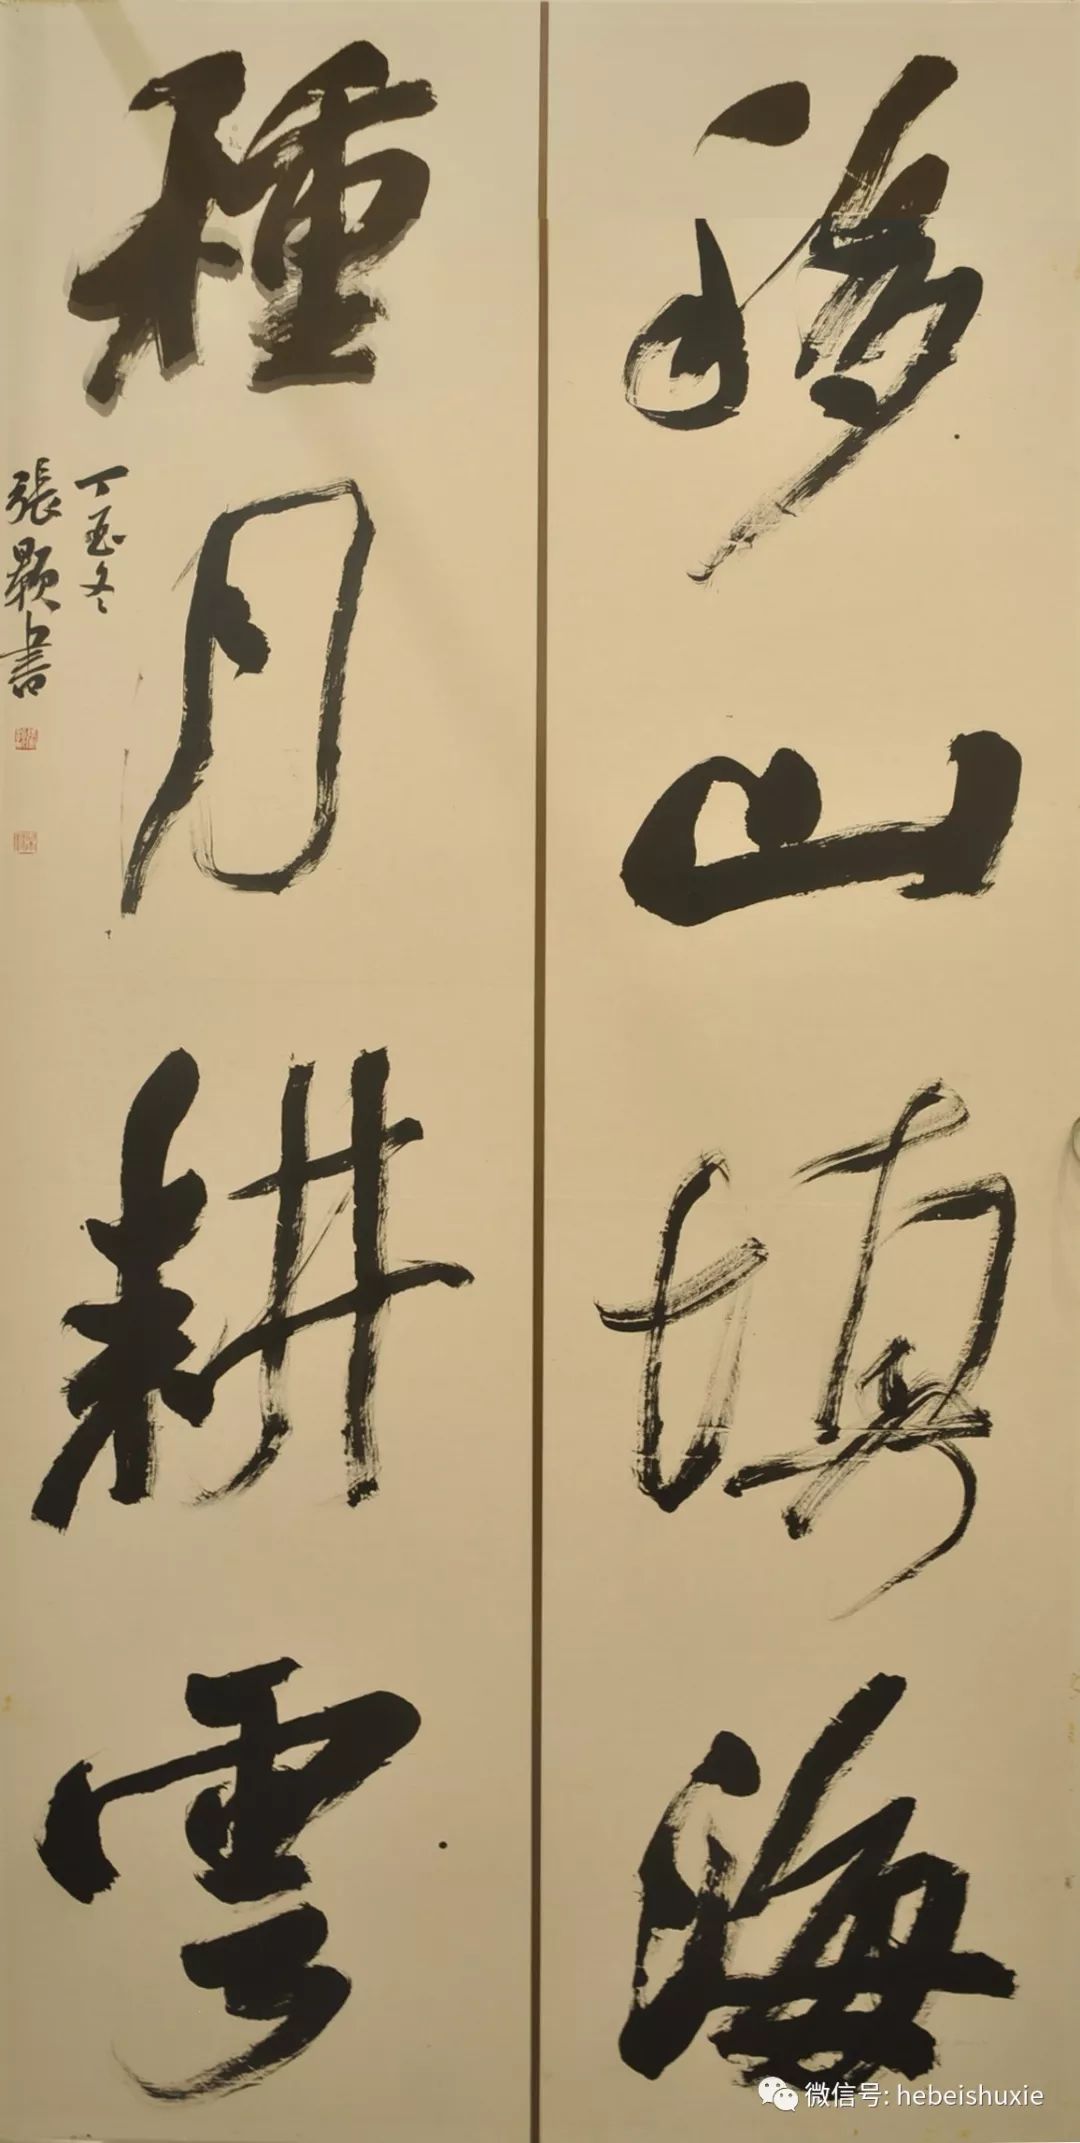 移山填海
種月耕雲
丁酉冬
張顥書
微信号: hebeishuxie